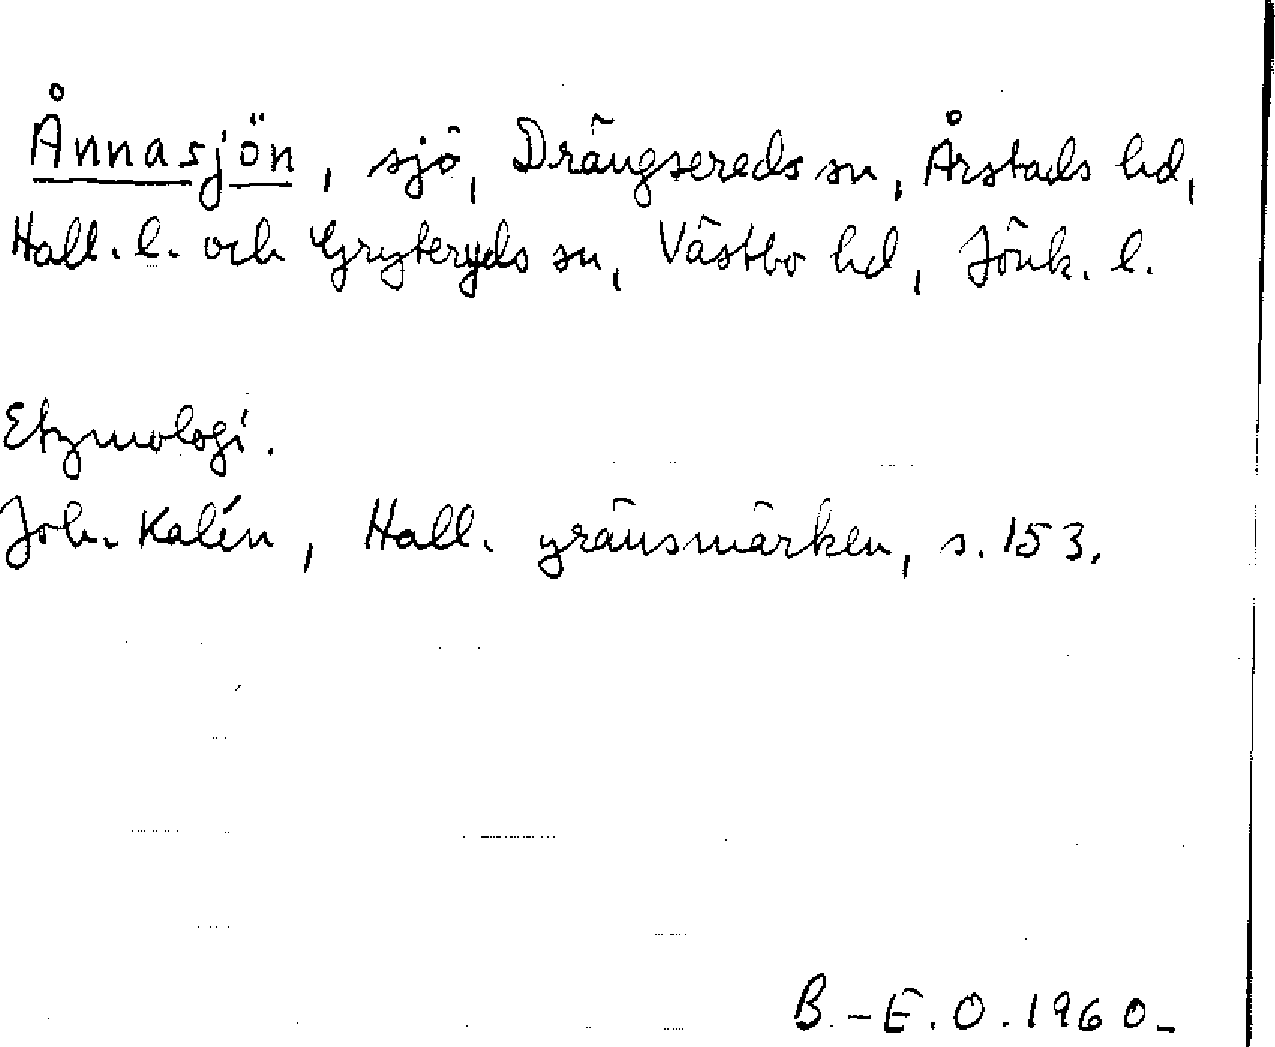 Ånnasjön, sjö, Drängsereds sn, Årstads hd,
Hall. l. och Gryteryds sn, Västbo hd, Jönk. l.
Etymologi.
Joh. Kalén, Hall. gränsmärken, s. 153.
B.-E. O. 1960-